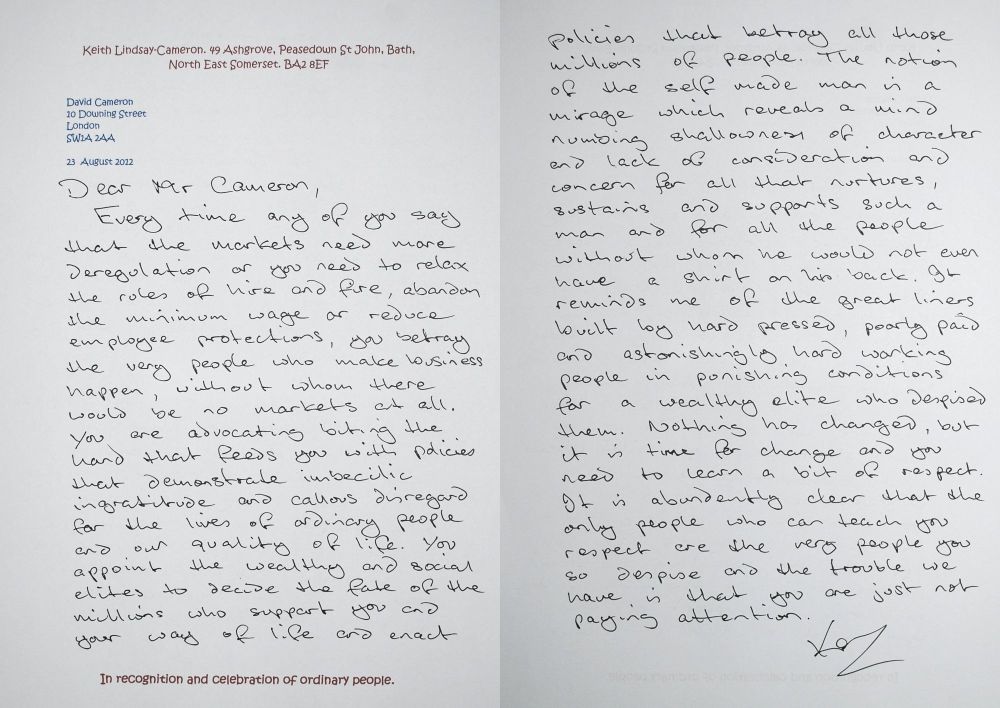 Keith Lindsay-Cameron. 49 Ashgrove, Peasedown St John, Bath,
North East Somerset. BA2 8EF
David Cameron
10 Downing Street
London
SW1A 2AA
23 August 2012
Dear Mr Cameron,
Every time any of you say
that the markets need more
deregulation or you need to relax
the rules of hire and fire, abandon
the minimum wage or reduce
employee protections, you betray
the very people who make business
happen, without whom there
would be no markets at all.
You are advocating biting the
hand that feeds you with policies
that demonstrate imbecilic
ingratitude and callous disregard
for the lives of ordinary people
and our quality of life. You
appoint the wealthy and social
elites to decide the fate of the
millions who support you and
your way of life and enact
In recognition and celebration of ordinary people.
policies that betray all those
millions of people. The notion
of the self made man is a
mirage which reveals a mind
numbing shallowness of character
and lack of consideration and
concern for all that nurtures,
sustains and supports such a
man and for all the people
without whom he would not even
have a shirt on his back. It
reminds me of the great liners
built by hard pressed, poorly paid
and astonishingly hard working
people in punishing conditions
for a wealthy elite who despised
them. Nothing has changed, but
it is time for change and you
need to learn a bit of respect.
It is abundently clear that the
only people who can teach you
respect are the very people you
so despise and the trouble we
have is that you are just not
paying attention.